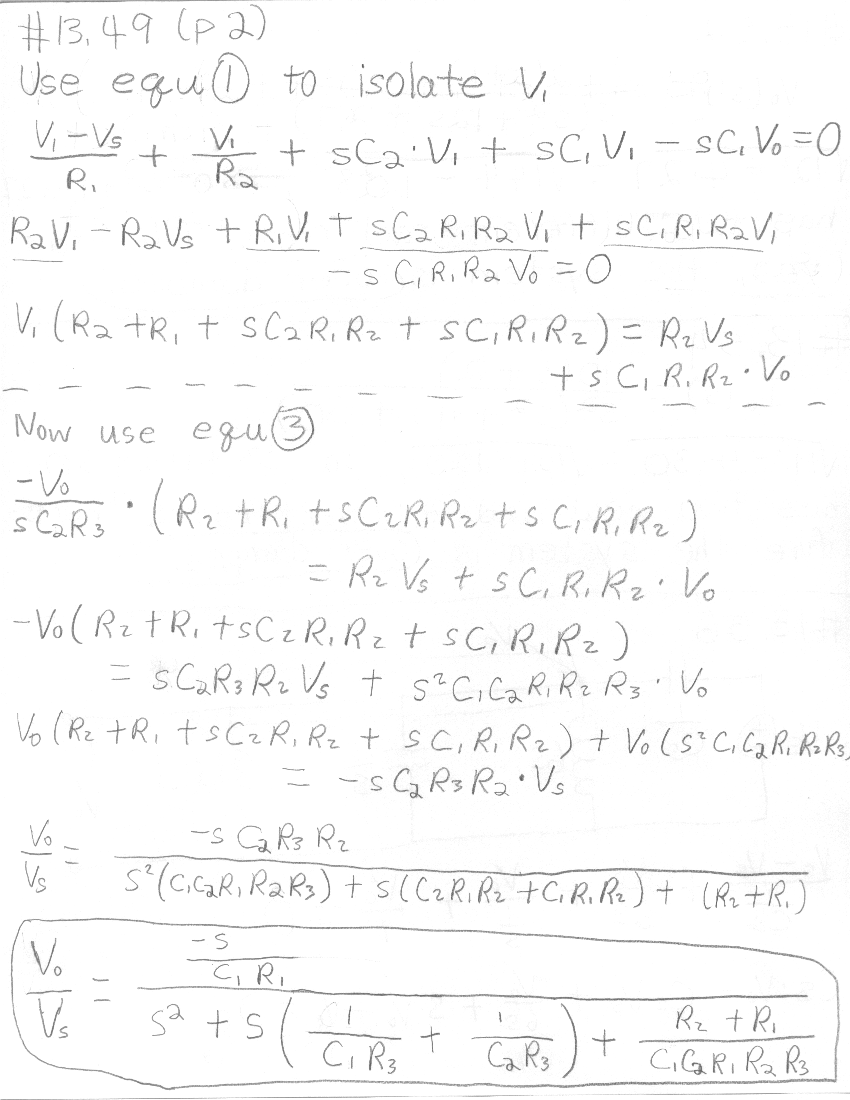 #13.49 (p2)
Use equ① to isolate V₁
(V₁ − Vs)/R₁ + V₁/R₂ + sC₂·V₁ + sC₁V₁ − sC₁V₀ = 0
R₂V₁ − R₂Vs + R₁V₁ + sC₂R₁R₂V₁ + sC₁R₁R₂V₁
− sC₁R₁R₂V₀ = 0
V₁(R₂ + R₁ + sC₂R₁R₂ + sC₁R₁R₂) = R₂Vs
+ sC₁R₁R₂·V₀
Now use equ③
−V₀/(sC₂R₃) · (R₂ + R₁ + sC₂R₁R₂ + sC₁R₁R₂)
= R₂Vs + sC₁R₁R₂·V₀
−V₀(R₂ + R₁ + sC₂R₁R₂ + sC₁R₁R₂)
= sC₂R₃R₂Vs + s²C₁C₂R₁R₂R₃·V₀
V₀(R₂ + R₁ + sC₂R₁R₂ + sC₁R₁R₂) + V₀(s²C₁C₂R₁R₂R₃)
= −sC₂R₃R₂·Vs
V₀/Vs = −sC₂R₃R₂ / (s²(C₁C₂R₁R₂R₃) + s(C₂R₁R₂ + C₁R₁R₂) + (R₂ + R₁))
V₀/Vs = (−s/(C₁R₁)) / (s² + s(1/(C₁R₃) + 1/(C₂R₃)) + (R₂ + R₁)/(C₁C₂R₁R₂R₃))